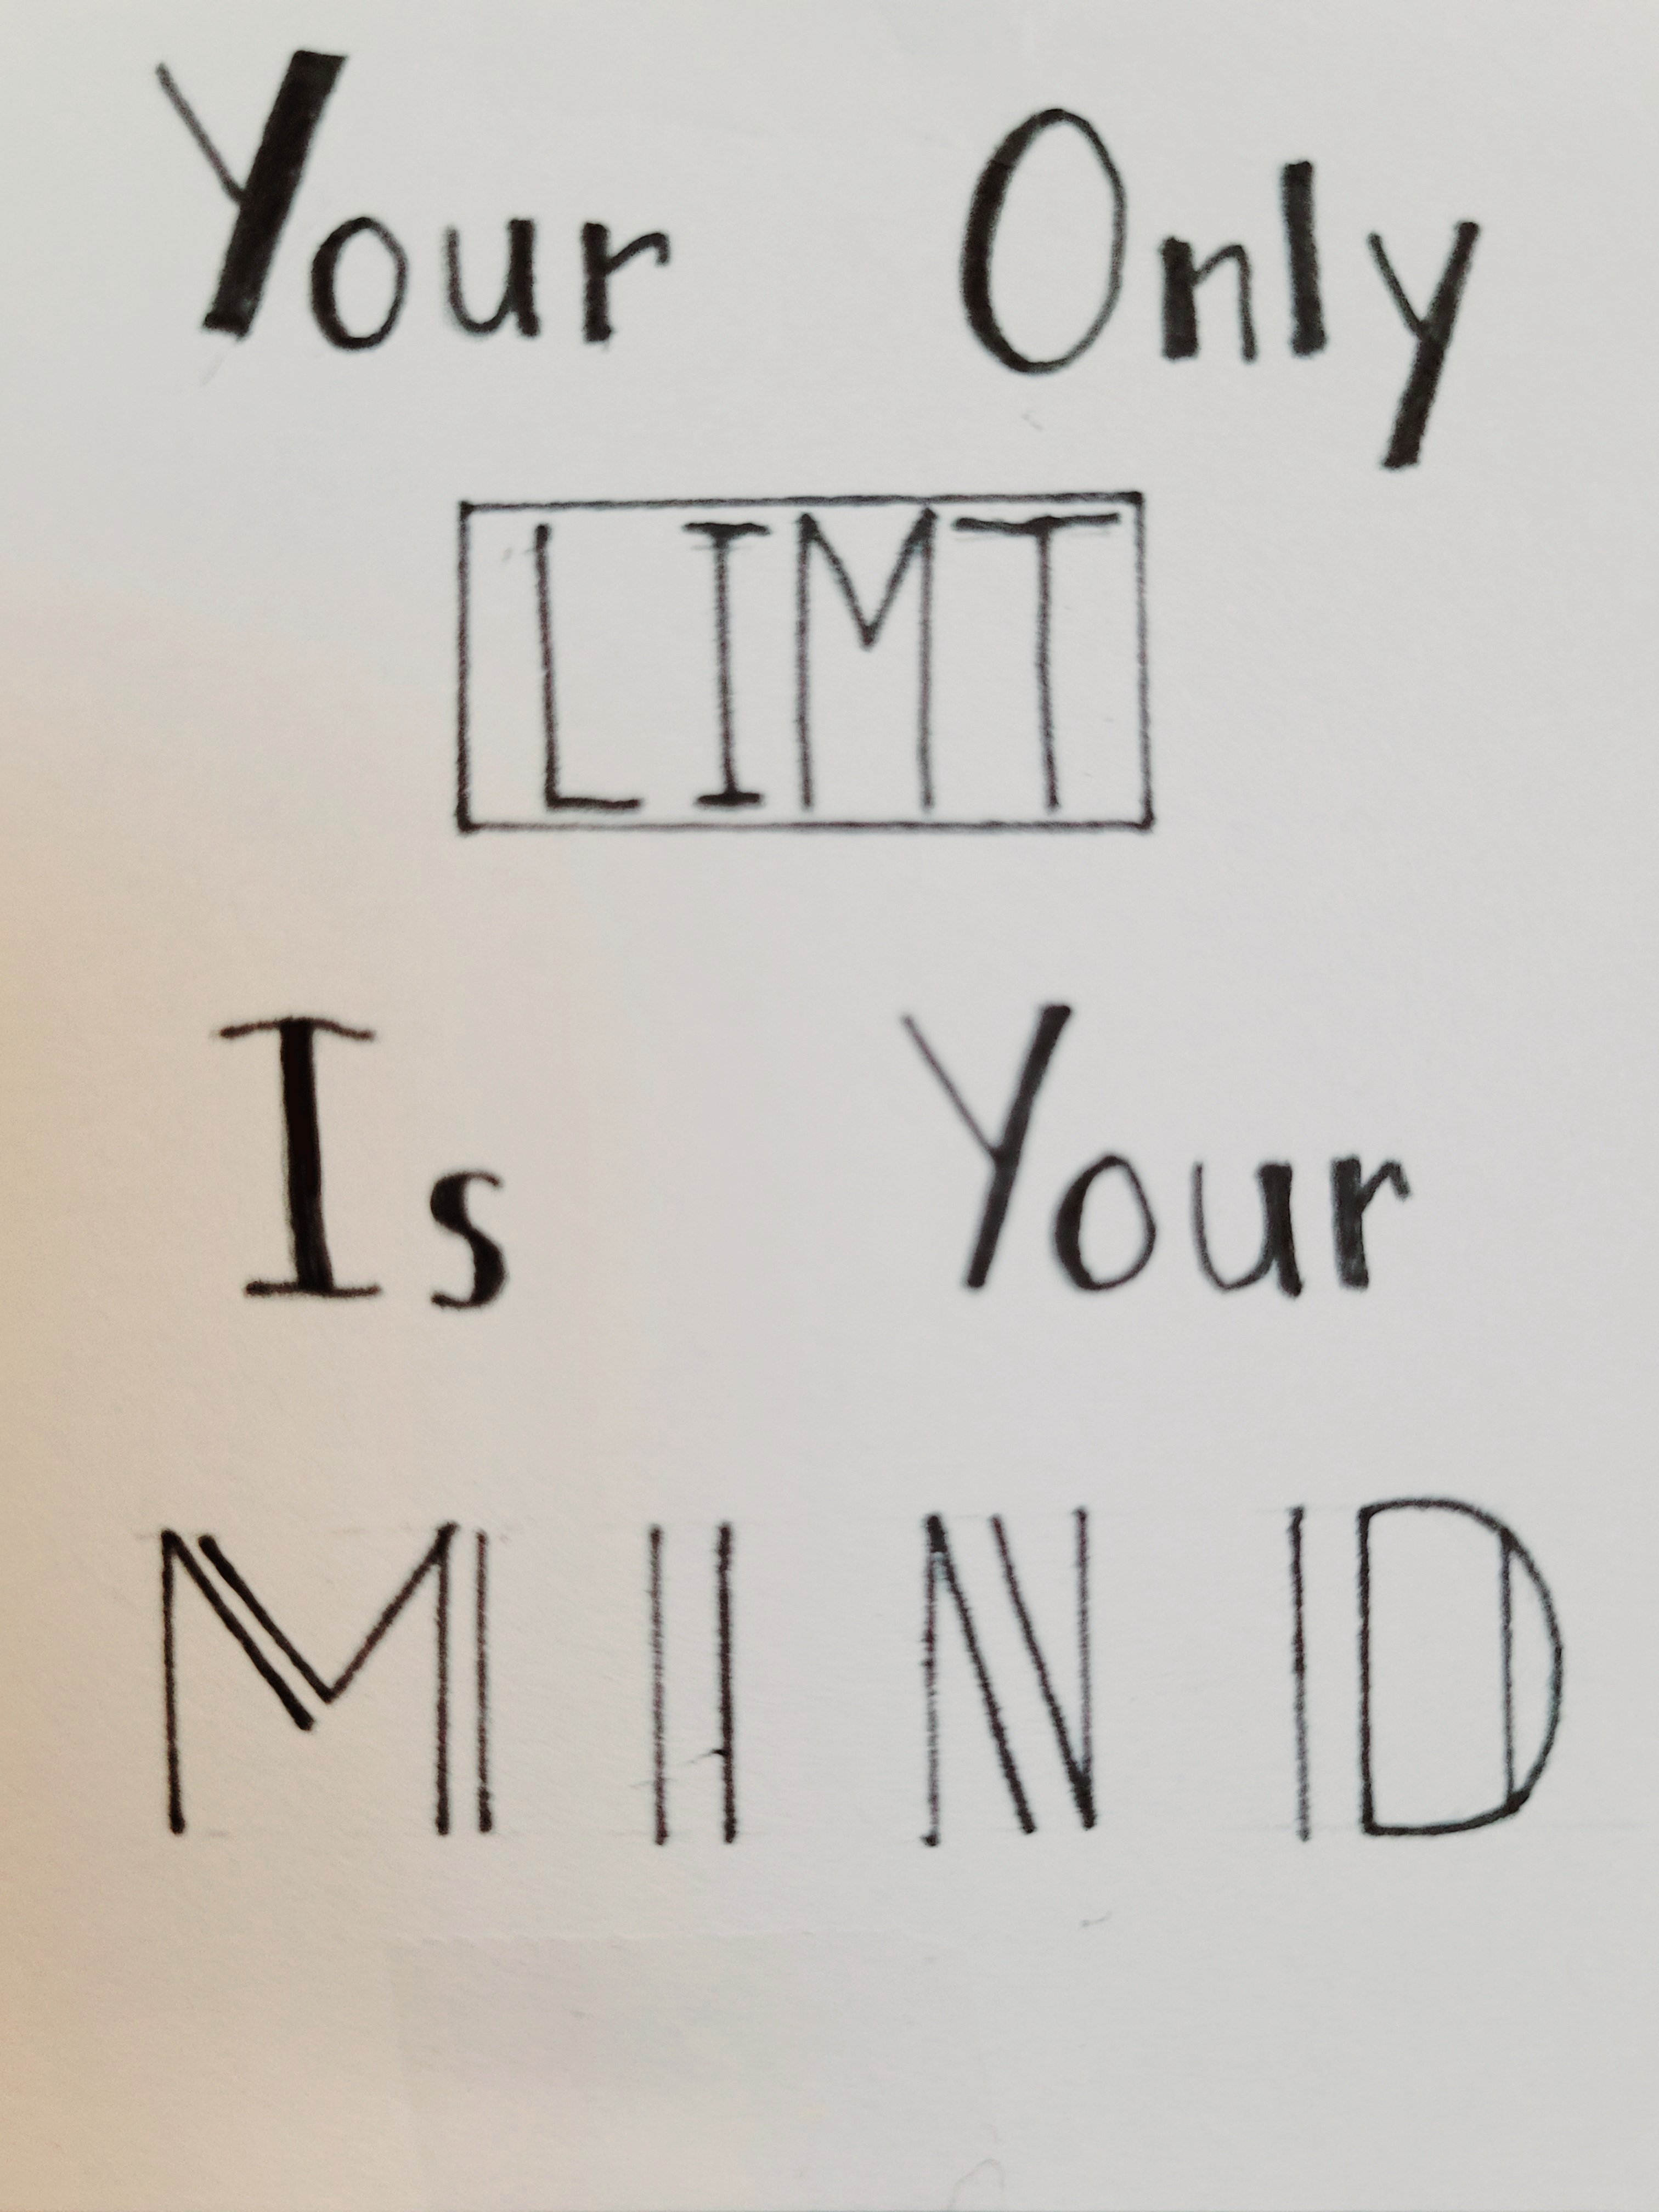 Your Only
LIMT
Is Your
MIND